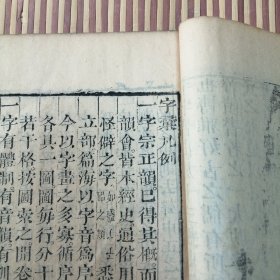 字彙凡例
一字宗正韻已得其概而
韻會皆本經史通俗用
怪僻之字 之類 悉
立部篇海以字音為
今以字畫之多寡循序
各具一圖圖每行分十
若干格按圖索之開卷
一字有體制有音韻有訓